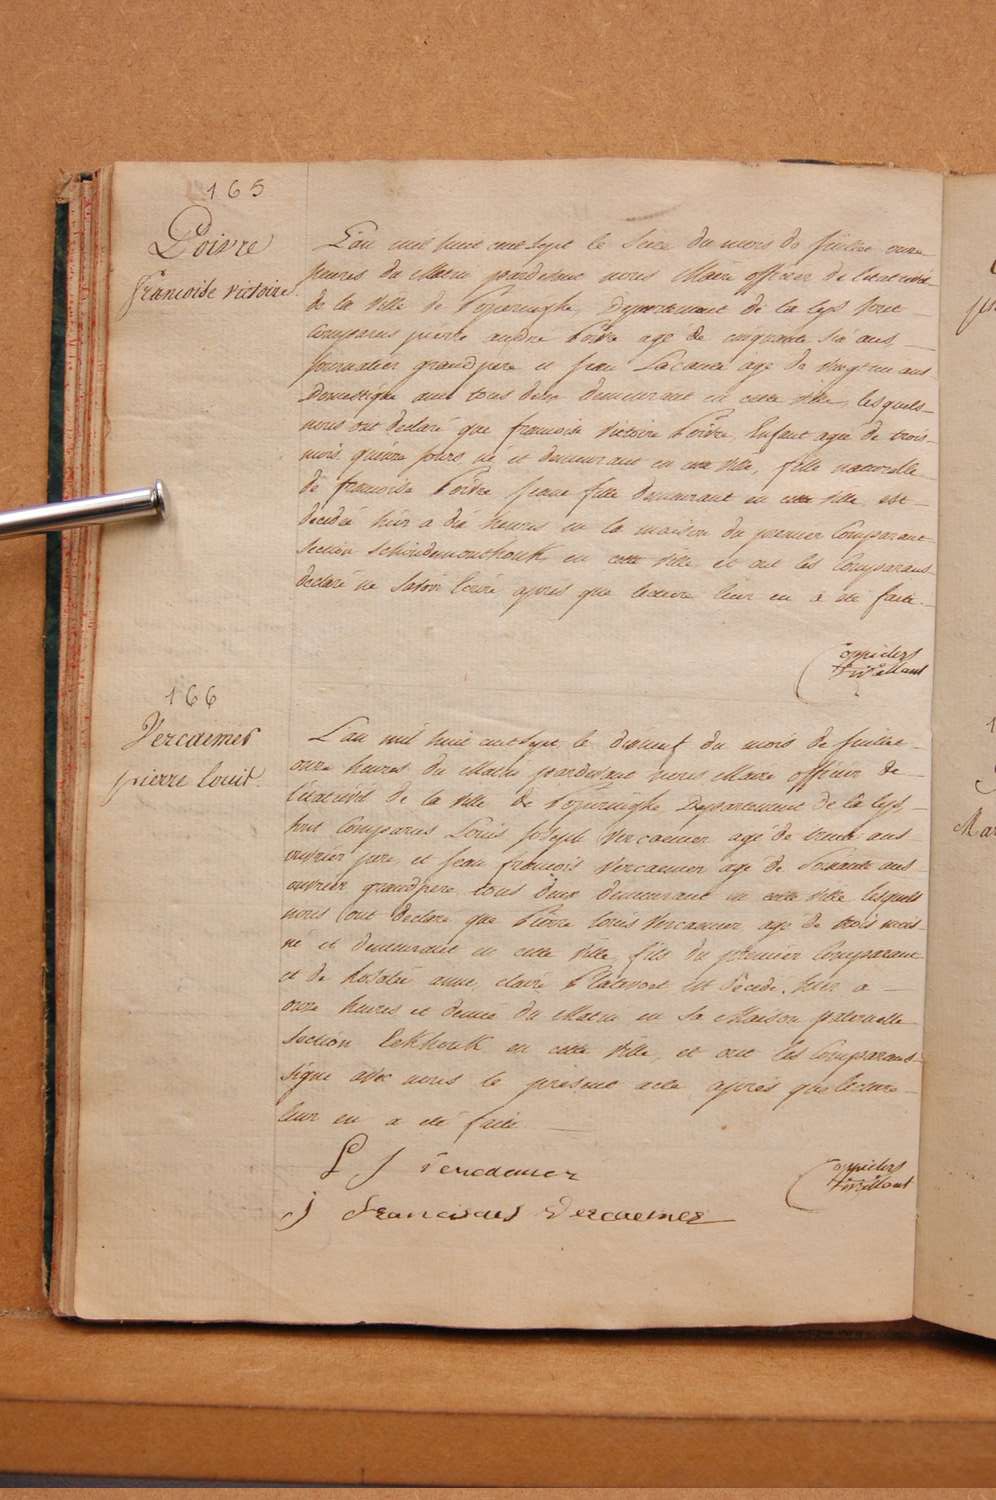 165
Poivre
francoise victoire
L'an mil huit cent sept le Seize du mois de juillet onze
heures du Matin pardevant nous Maire officier de l'etat civil
de la Ville de Poperinghe, Departement de la Lys sont
Comparus pierre andre Poivre agé de cinquante six ans
Journalier grandpere et jean agé de vingt un ans
Domestique ami tous deux demeurant en cette ville, lesquels
nous ont declaré que francoise Victoire Poivre, Enfant agée de trois
mois quinze jours né et demeurant en cette ville, fille naturelle
de francoise Poivre jeune fille demeurant en cette ville est
decédée hier a dix heures en la maison du premier Comparant
Section Schoudemonthouk en cette ville et ont les Comparans
declaré ne Savoir Ecrire après que lecture leur en a eté faite.
166
Vercaemer
pierre louis
L'an mil huit cent sept le dixneuf du mois de juillet
onze heures du Matin pardevant nous Maire officier de
l'état civil de la Ville de Poperinghe Departement de la Lys,
sont Comparus Louis joseph Vercaemer agé de trente ans
ouvrier pere, et jean francois Vercaemer agé de Soixante ans
ouvrier grandpere tous deux demeurant en cette ville lesquels
nous ont declaré que Pierre louis Vercaemer agé de trois mois
né et demeurant en cette ville, fils du premier Comparant
et de Rosalie anne claire est décédé hier a
onze heures et demie du Matin en Sa Maison paternelle
Section Eekhouk en cette ville, et ont les Comparans
signé avec nous le présent acte après que lecture
leur en a eté faite
L J Vercaemer
J Franciscus Vercaemer